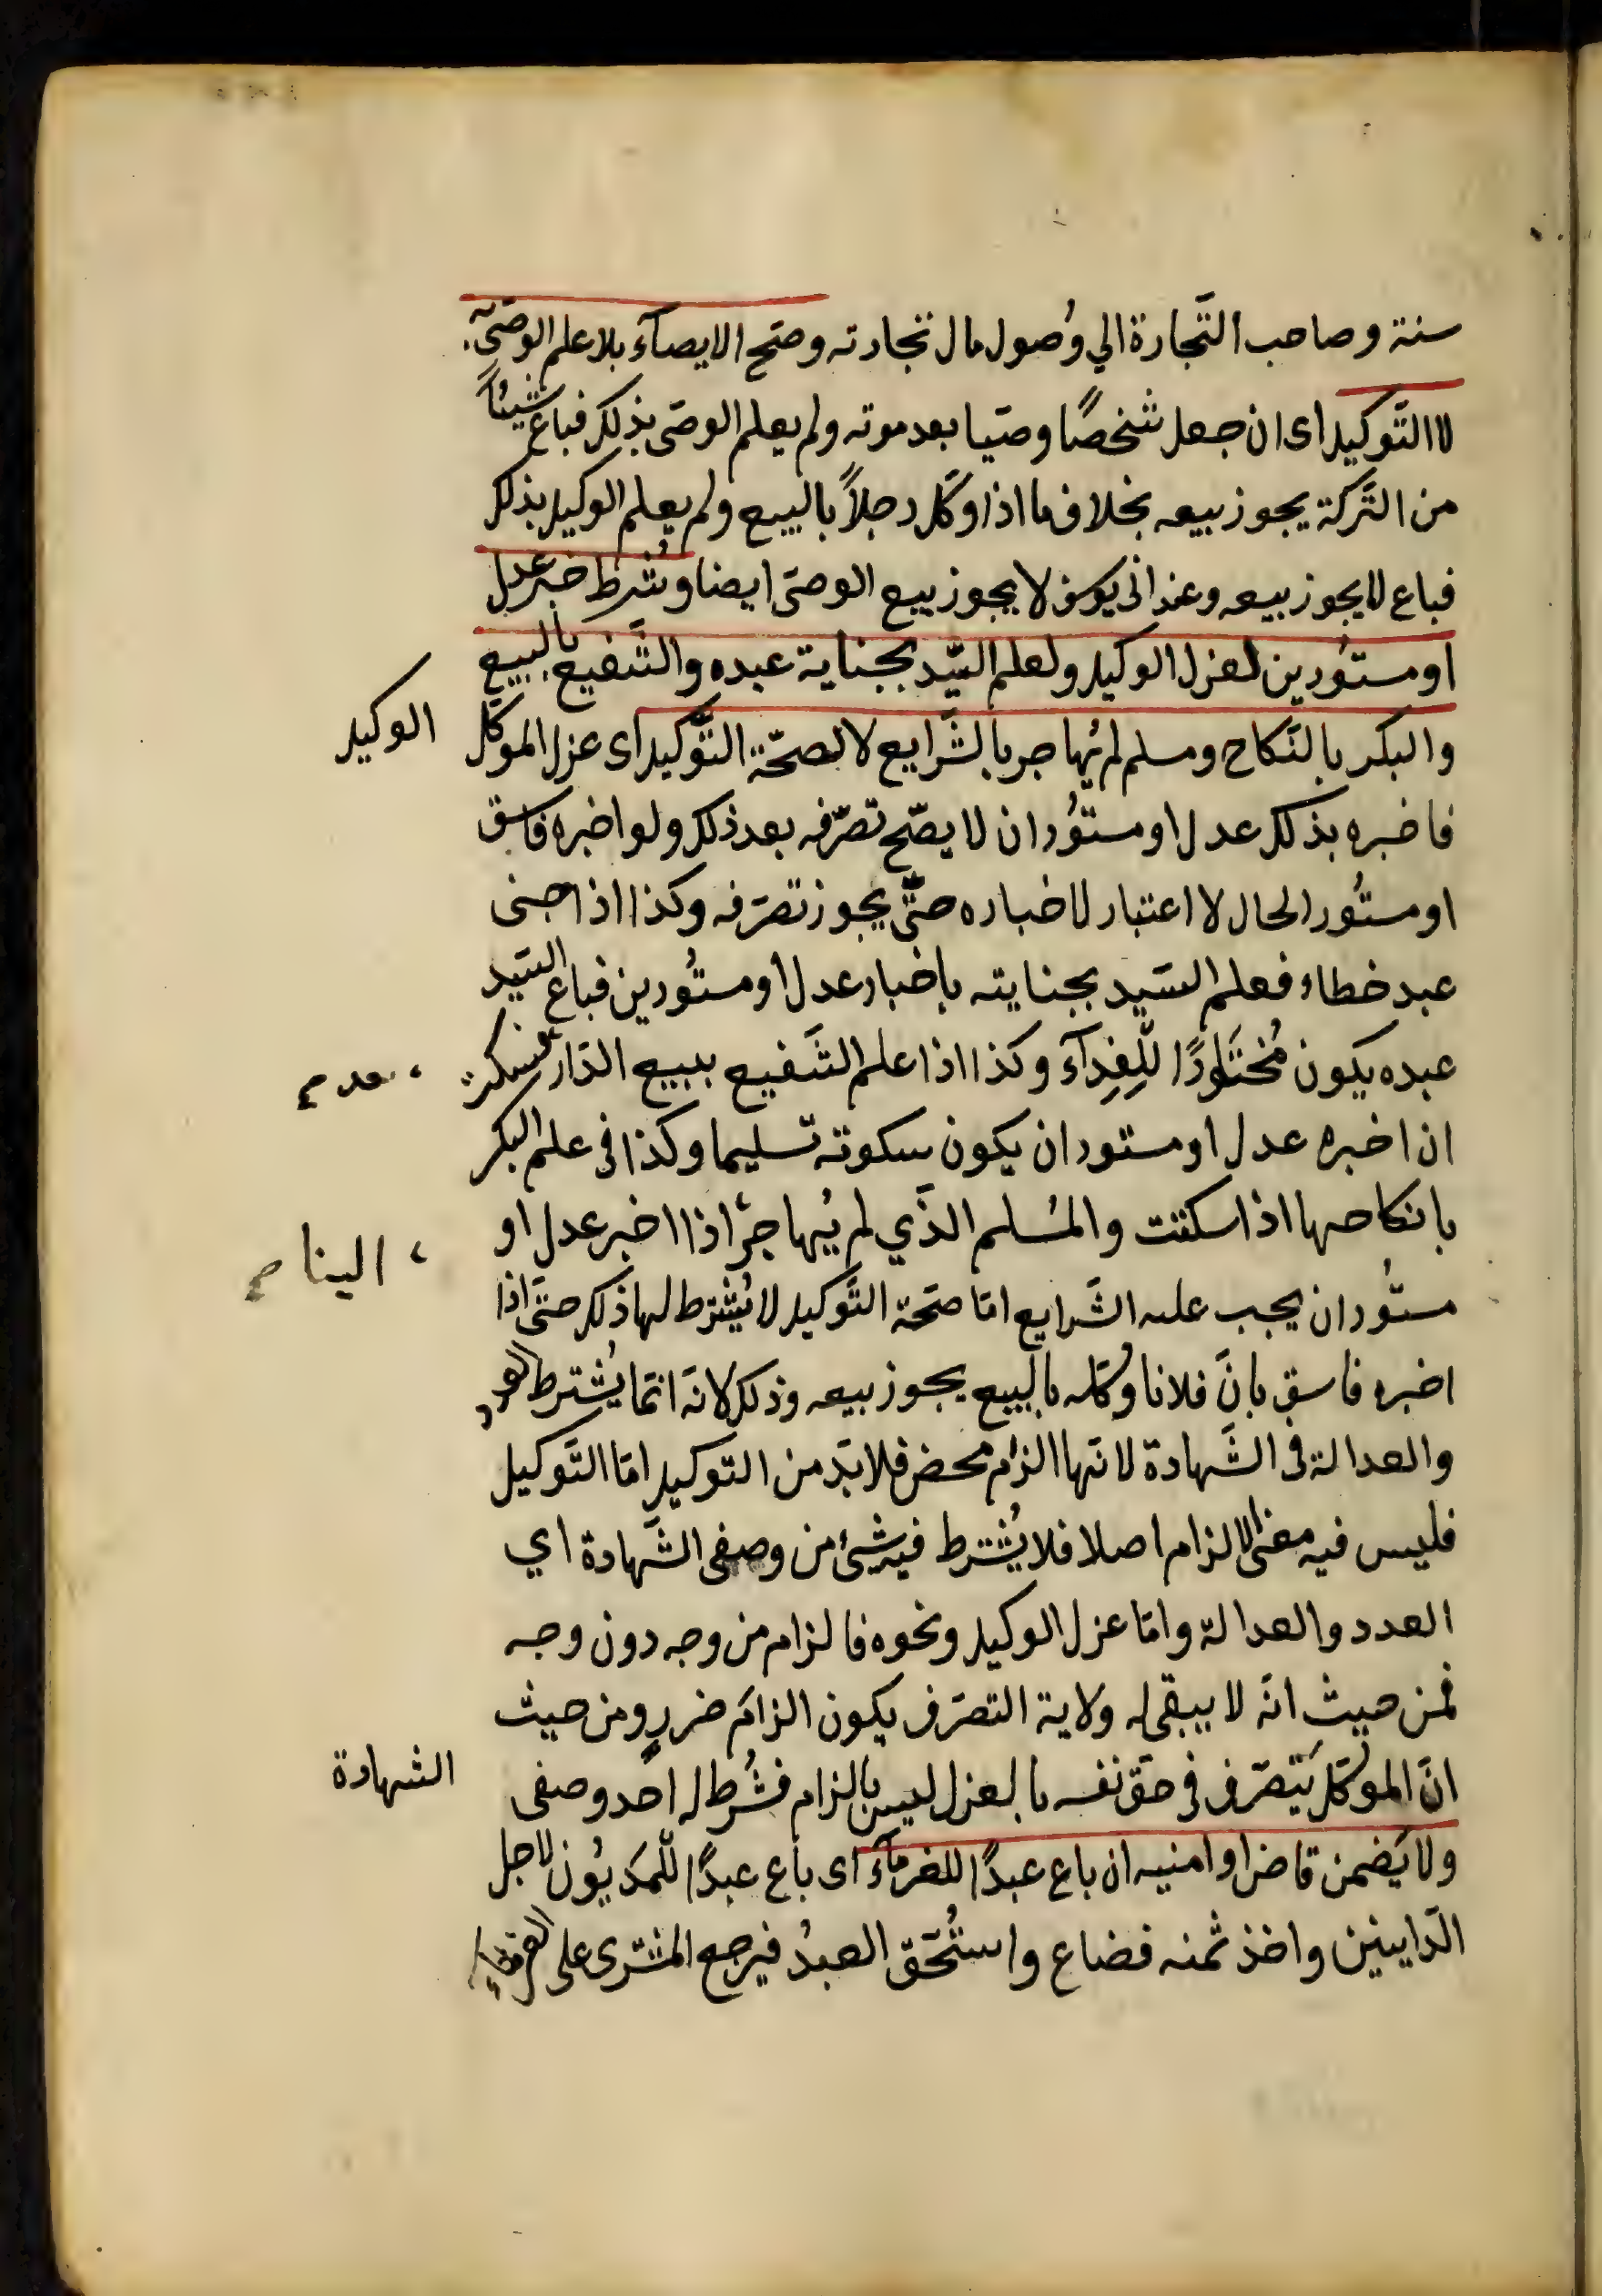 سنة وصاحب التّجارة الي وُصول مال تجارته وصَح الايصآء بلا علم الوصىّ به
لا التّوكيل اى ان جعل شخصًا وصّيا بعد موته ولم يعلم الوصى بذلك فباع شيئًا
من التَّركة يجوز بيعه بخلاف ما اذا وكّل رجلاً بالبيع ولم يعلم الوكيل بذلك
فباع لا يجوز بيعه وعند ابى يوسف لا يجوز بيع الوصى ايضا وشُرِط خبر عدل
او مستُورين لعزل الوكيل ولعلم السّيد بجناية عبده والشَّفيع بالبيع
والبكر بالنّكاح ومسلم لم يُهاجر بالشَّرايع لا لصحّة التّوكيل اى عزل الموكّل الوكيل
فاخبره بذلك عدل او مستوُران لا يصّح تصرّفه بعد ذلك ولو اخبره فاسق
او مستُور الحال لا اعتبار لاخباره حتّى يجوز تصرّفه وكذا اذا جنى
عبد خطاء فعلم السَيد بجنايته باخبار عدل او مستُورين فباع السَيد
عبده يكون مُختارًا للفِدآء وكذا اذا علم الشَفيع ببيع الدّار فسكت
، بعد م
ان اخبره عدل او مستوران يكون سكوته تسليما وكذا فى علم البكر
بانكاحها اذا سكتت والمسُلم الذَّي لم يُهاجر اذا اخبر عدل او
، الينا م
مستُوران يجب عليه الشَّرايع امّا صَحة التَّوكيل لا يُشترط لها ذلك حتَّى اذا
اخبره فاسق بانَّ فلانا وكّله بالبيع يجوز بيعه وذلك لانّه انّما يُشترط العدد
والعدالة فى الشَّهادة لانّها الزام محض فلا بدّ من التّوكيد امّا التَّوكيل
فليس فيه معنى الالزام اصلا فلا يُشترط فيه شئ من وصفى الشَّهادة اي
العدد والعدالة وامّا عزل الوكيل ونحوه فالزام من وجه دون وجه
فمن حيث انّه لا يبقى له ولاية التصرّف يكون الزامَ ضررٍ ومن حيث
انّ الموكّل يَتصرّف فى حقّ نفسه بالعزل ليس بالزام فشُرط له احد وصفى الشهادة
ولا يَضمن قاض او امنيه ان باع عبدًا للغرمآء اى باع عبدًا للّمَديُون لاجل
الدّاينين واخذ ثمنه فضاع واستُحّق العبدُ فيرجع المشترى على الغرماء